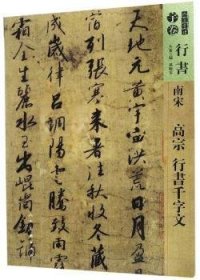 行書
南宋
高宗 行書千字文
天地元黄宇宙洪荒日月盈
宿列張寒来暑往秋收冬藏
成歲律呂調陽雲騰致雨露
霜金生麗水玉出崑岡劔